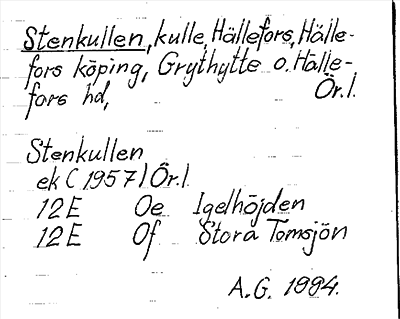 Stenkullen, kulle, Hällefors, Hälle-
fors köping, Grythytte o. Hälle-
fors hd, Ör.l.
Stenkullen
ek (1957) Ör.l.
12E 0e Igelhöjden
12E 0f Stora Tomsjön
A.G. 1994.